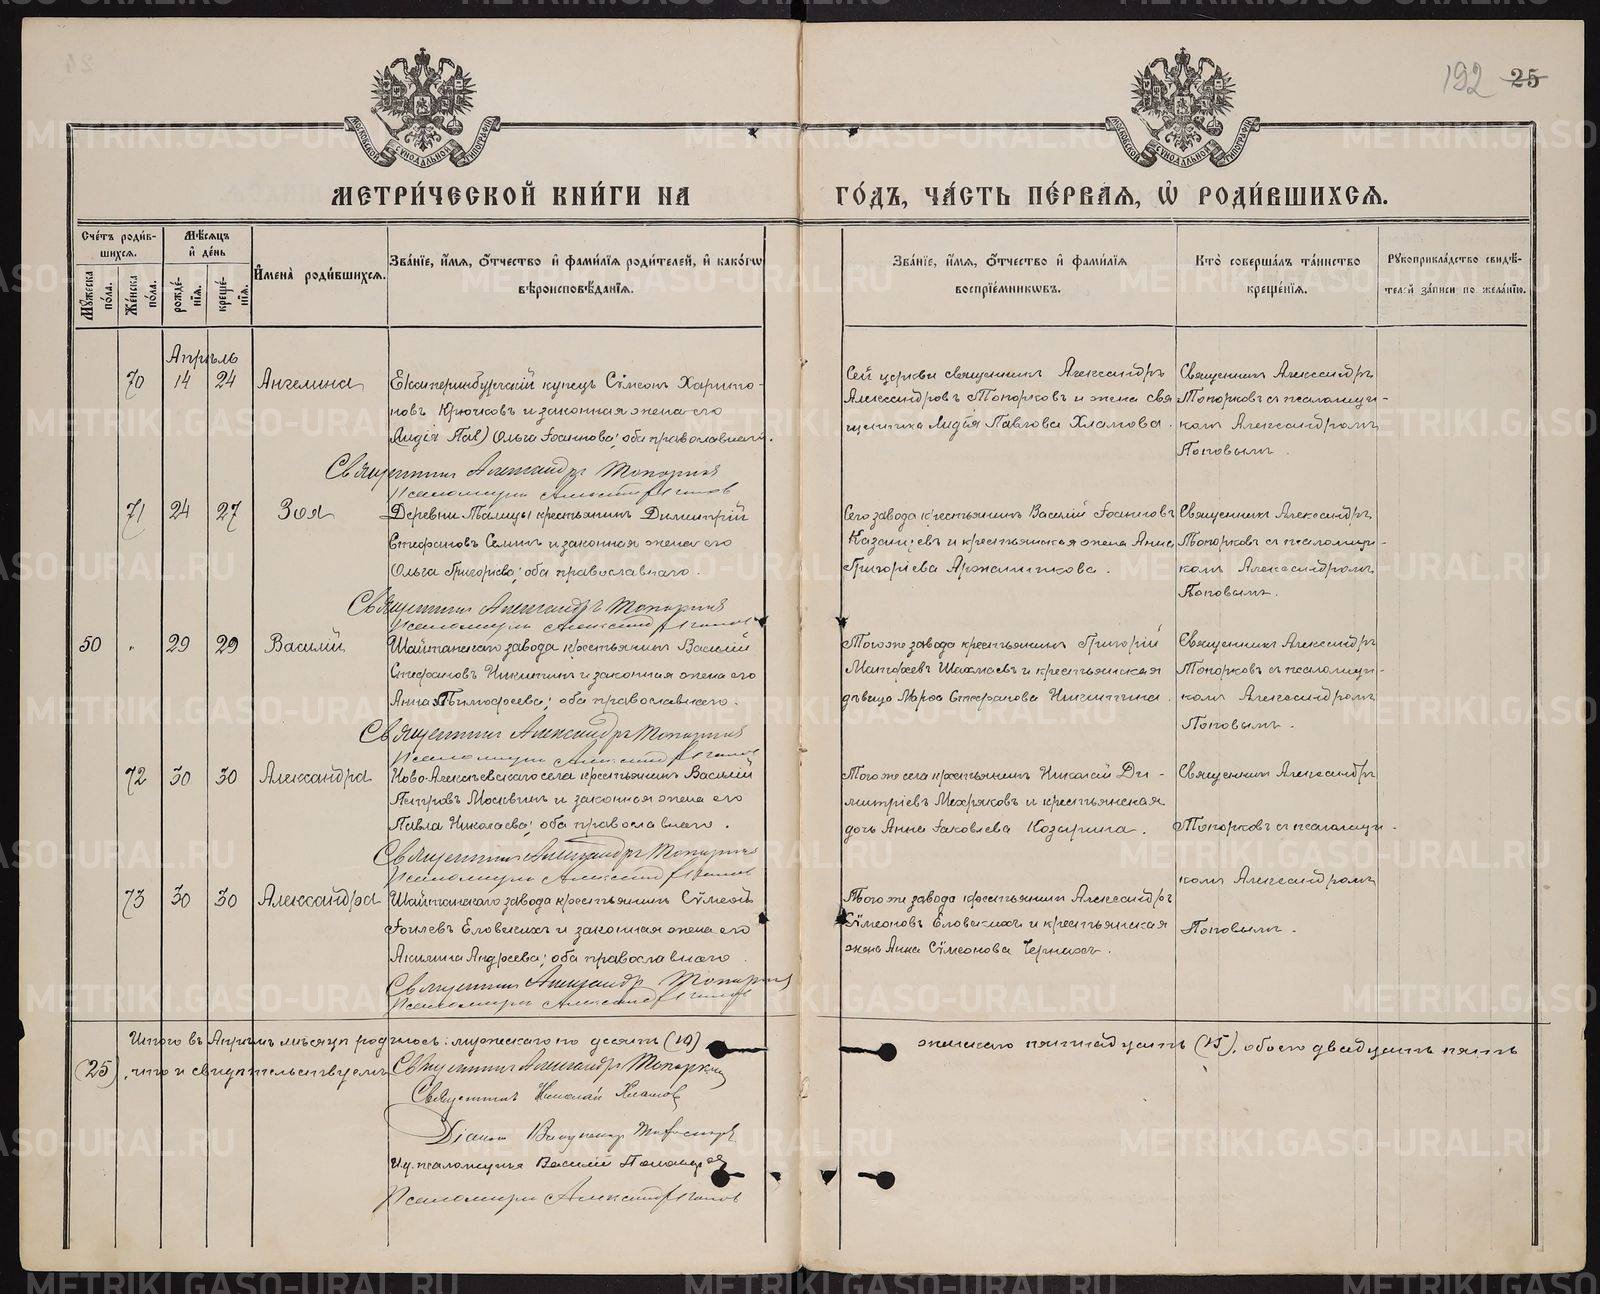 192 25
МОСКОВСКОЙ СѴНОДАЛЬНОЙ ТИПОГРАФІИ
МОСКОВСКОЙ СѴНОДАЛЬНОЙ ТИПОГРАФІИ
МЕТРИ́ЧЕСКОЙ КНИ́ГИ НА ГО́ДЪ, ЧА́СТЬ ПЕ́РВАѦ, Ѡ҆ РОДИ́ВШИХСѦ.
Сче́тъ роди́в-
шихсѧ.
Мꙋ́жеска по́ла.
Же́нска по́ла.
Мѣ́сѧцъ
и҆ де́нь
рожде́-
нїѧ.
креще́-
нїѧ.
И҆мена̀ роди́вшихсѧ.
Зва́нїе, и҆́мѧ, ѻ҆́тчество и҆ фами́лїѧ роди́телей, и҆ како́гѡ
вѣроисповѣ́данїѧ.
Зва́нїе, и҆́мѧ, ѻ҆́тчество и҆ фами́лїѧ
воспрїе́мникѡвъ.
Кто̀ соверша́лъ та́инство
креще́нїѧ.
Рꙋкоприкла́дство свидѣ́-
телей за́писи по жела́нїю.
Апрѣль
70 14 24 Ангелина
Екатеринбургскій купецъ Сѵмеонъ Харито-
новъ Крючковъ и законная жена его
Ольга Іоаннова; оба православнаго.
Священникъ Александръ Топорковъ
Псаломщикъ Александръ Поповъ
Сей церкви священникъ Александръ
Александровъ Топорковъ и жена свя
щенника Лидія Павлова Хламова.
Священникъ Александръ
Топорковъ съ псаломщи-
комъ Александромъ
Поповымъ.
71 24 27 Зоя
Деревни Талицы крестьянинъ Димитрій
Стефановъ Семинъ и законная жена его
Ольга Григорьева; оба православнаго.
Священникъ Александръ Топорковъ
Псаломщикъ Александръ Поповъ
Сего завода крестьянинъ Василій Іоанновъ
Казанцевъ и крестьянская жена Анна
Григоріева Аржанникова.
Священникъ Александръ
Топорковъ съ псаломщи-
комъ Александромъ
Поповымъ.
50 " 29 29 Василій
Шайтанскаго завода крестьянинъ Василій
Стефановъ Никитинъ и законная жена его
Анна Тимофеева; оба православнаго.
Священникъ Александръ Топорковъ
Псаломщикъ Александръ Поповъ
Того же завода крестьянинъ Григорій
Матфеевъ и крестьянская
дѣвица Стефанова Никитина.
Священникъ Александръ
Топорковъ съ псаломщи-
комъ Александромъ
Поповымъ.
72 30 30 Александра
Ново-Алексѣевскаго села крестьянинъ Василій
Петровъ Москвинъ и законная жена его
Павла Николаева; оба православнаго.
Священникъ Александръ Топорковъ
Псаломщикъ Александръ Поповъ
Того же села крестьянинъ Николай Ди-
митріевъ Мехряковъ и крестьянская
дочь Анна Іаковлева Козырина.
Священникъ Александръ
Топорковъ съ псаломщи-
комъ Александромъ
Поповымъ.
73 30 30 Александра
Шайтанскаго завода крестьянинъ Сѵмеонъ
Іоилевъ Еловскихъ и законная жена его
Акилина Андреева; оба православнаго.
Священникъ Александръ Топорковъ
Псаломщикъ Александръ Поповъ
Того же завода крестьянинъ Александръ
Сѵмеоновъ Еловскихъ и крестьянская
жена Анна Сѵмеонова Черныхъ.
Итого въ Апрѣлѣ мѣсяцѣ родилось: мужескаго по десять (10) женскаго пятнадцать (15), обоего двадцать пять
(25), что и свидѣтельствуемъ Священникъ Александръ Топорковъ
Священникъ Николай Хламовъ
Діаконъ
И. д. псаломщика Василій
Псаломщикъ Александръ Поповъ
METRIKI.GASO-URAL.RU